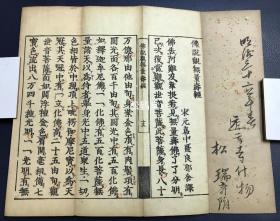 明治三十二年
什物
松 瑞
佛説觀無量壽經
宋元嘉中畺良耶舍譯
佛告阿難及韋提希見無量壽佛了了分明
已次復當觀觀世音菩薩此菩薩身長八十
佛説觀無量壽經 十三
萬億那由他由旬身紫金色頂有肉髻項有
圓光面各百千由旬其圓光中有五百化佛
如釋迦牟尼一一化佛有五百化菩薩無
量諸天以爲侍者舉身光中五道衆生一切
色相皆於中現頂上毗楞伽摩尼寶以爲天
冠其天冠中有一立化佛高二十五由旬觀
世音菩薩面如閻浮檀金色眉間毫相備七
寶色流出八萬四千種光明一一光明有無